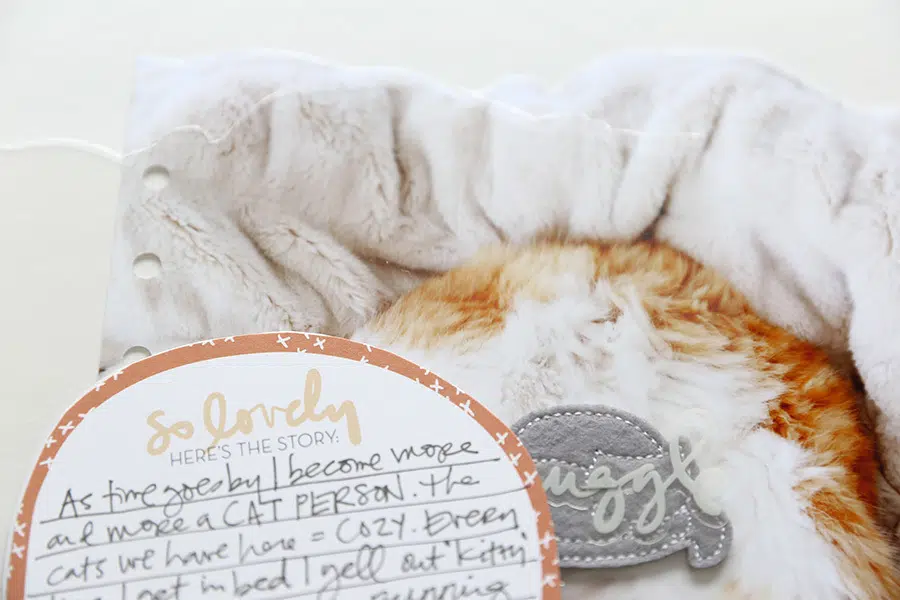 so lovely
HERE'S THE STORY:
As time goes by I become more
and more a CAT PERSON. The
cats we have here = COZY. Every
time I get in bed I yell out "kitty
running
uggl